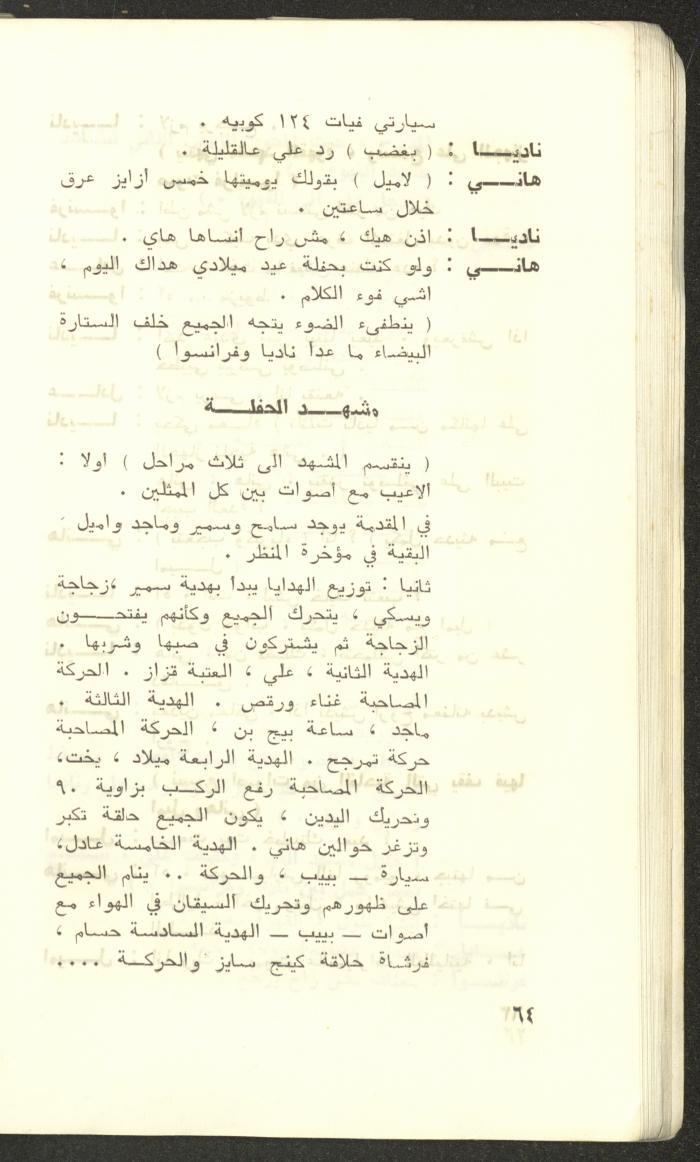 سيارتي فيات ١٢٤ كوبيه .
ناديـــا : ( بغضب ) رد علي عالقليلة .
هانـــي : ( لاميل ) بقولك يوميتها خمس أزايز عرق
خلال ساعتين .
ناديـــا : اذن هيك ، مش راح انساها هاي .
هانـــي : ولو كنت بحفلة عيد ميلادي هداك اليوم ،
اشي فوء الكلام .
( ينطفىء الضوء يتجه الجميع خلف الستارة
البيضاء ما عدا ناديا وفرانسوا )
مشهـــد الحفلـــة
( ينقسم المشهد الى ثلاث مراحل ) اولا :
الاعيب مع اصوات بين كل الممثلين .
في المقدمة يوجد سامح وسمير وماجد واميل
البقية في مؤخرة المنظر .
ثانيا : توزيع الهدايا يبدأ بهدية سمير ،زجاجة
ويسكي ، يتحرك الجميع وكأنهم يفتحـــون
الزجاجة ثم يشتركون في صبها وشربها .
الهدية الثانية ، علي ، العتبة قزاز . الحركة
المصاحبة غناء ورقص . الهدية الثالثة .
ماجد ، ساعة بيج بن ، الحركة المصاحبة
حركة تمرجح . الهدية الرابعة ميلاد ، يخت،
الحركة المصاحبة رفع الركـب بزاوية ٩٠
وتحريك اليدين ، يكون الجميع حلقة تكبر
وتزغر حوالين هاني . الهدية الخامسة عادل،
سيارة ــ بييب ، والحركة .. ينام الجميع
على ظهورهم وتحريك السيقان في الهواء مع
أصوات ــ بييب ــ الهدية السادسة حسام ،
فرشاة حلاقة كينج سايز والحركـــة ....
٦٤